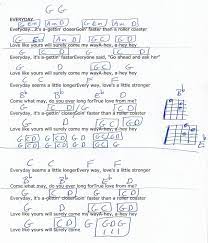 G G
EVERYDAY
G Em Am D G Em Am D
Everyday, it's a-gettin' closerGoin' faster than a roller coaster
G Em Am D G C G D
Love like yours will surely come my wayA-hey, a-hey hey
G C D G C D
Everyday, it's a-gettin' fasterEveryone said, "Go ahead and ask her"
G D G C G D
Love like yours will surely come my wayA-hey, a-hey hey
C F
Everyday seems a little longerEvery way, love's a little stronger
Bb D
Come what may, do you ever long forTrue love from me?
G C D G C D
Everyday, it's a-gettin' closerGoin' faster than a roller coaster
G D G C G D
Love like yours will surely come my wayA-hey, a-hey hey
Bb
C F C F
Everyday seems a little longerEvery way, love's a little stronger
Bb D
Come what may, do you ever long forTrue love from me?
G C D G C D
Everyday, it's a-gettin' closerGoin' faster than a roller coaster
G D G C G D
Love like yours will surely come my wayA-hey, a-hey hey
G D G C G D
Love like yours will surely come my way